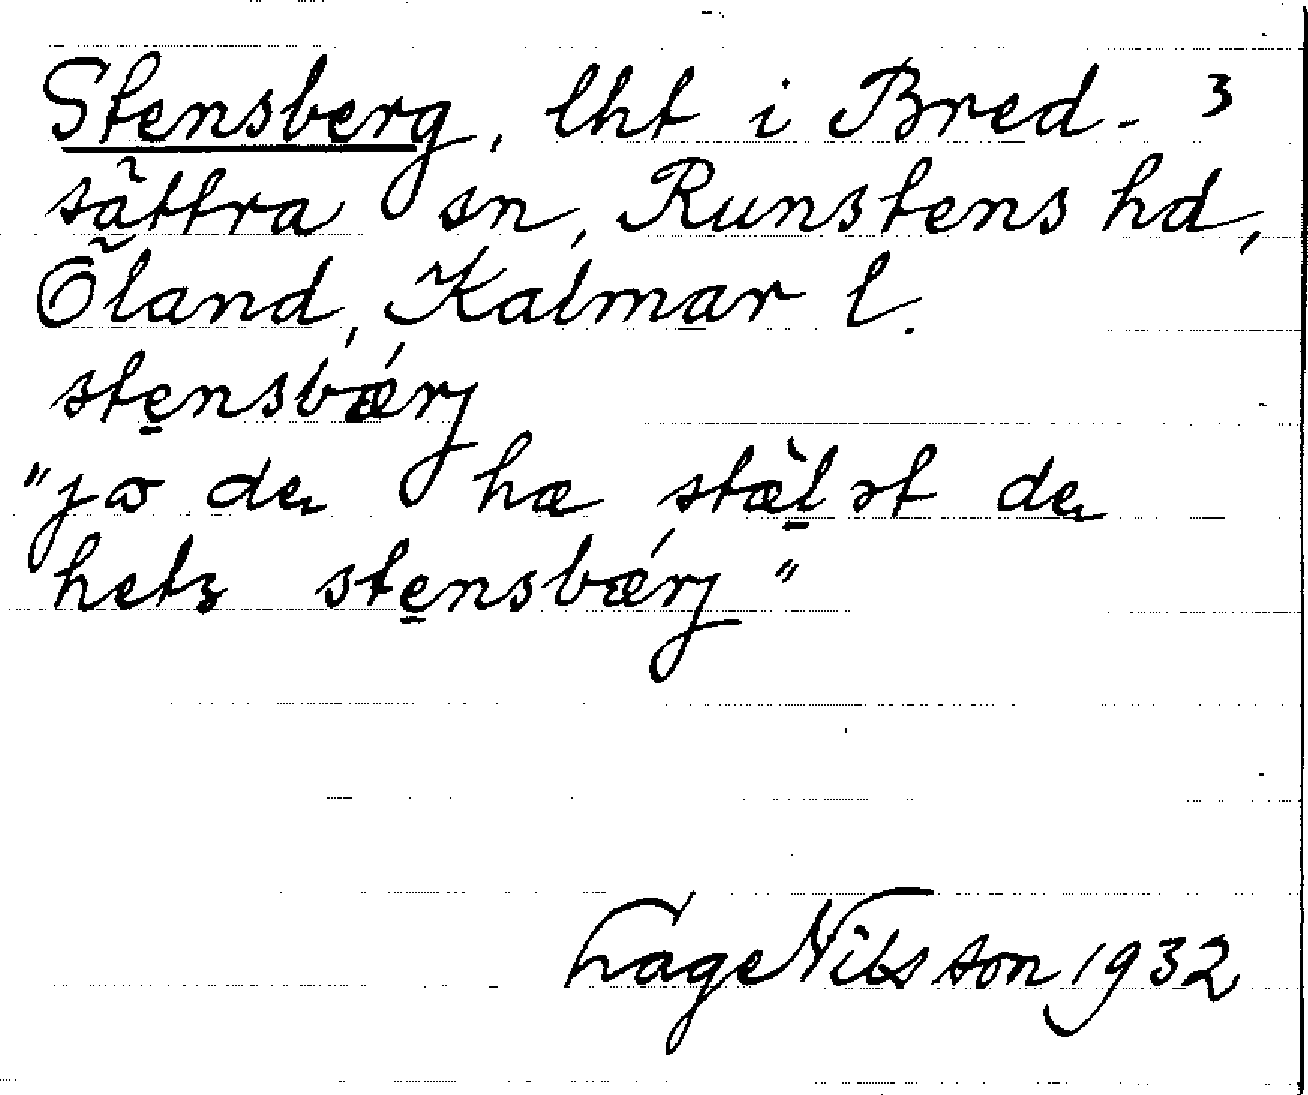 Stensberg, lht i Bred- 3
sättra sn, Runstens hd,
Öland, Kalmar l.
stẹnsbǽrj
"jɷ de hæ stæ̀lət de
hetɜ stẹnsbǽrj"
Lage Nilsson 1932